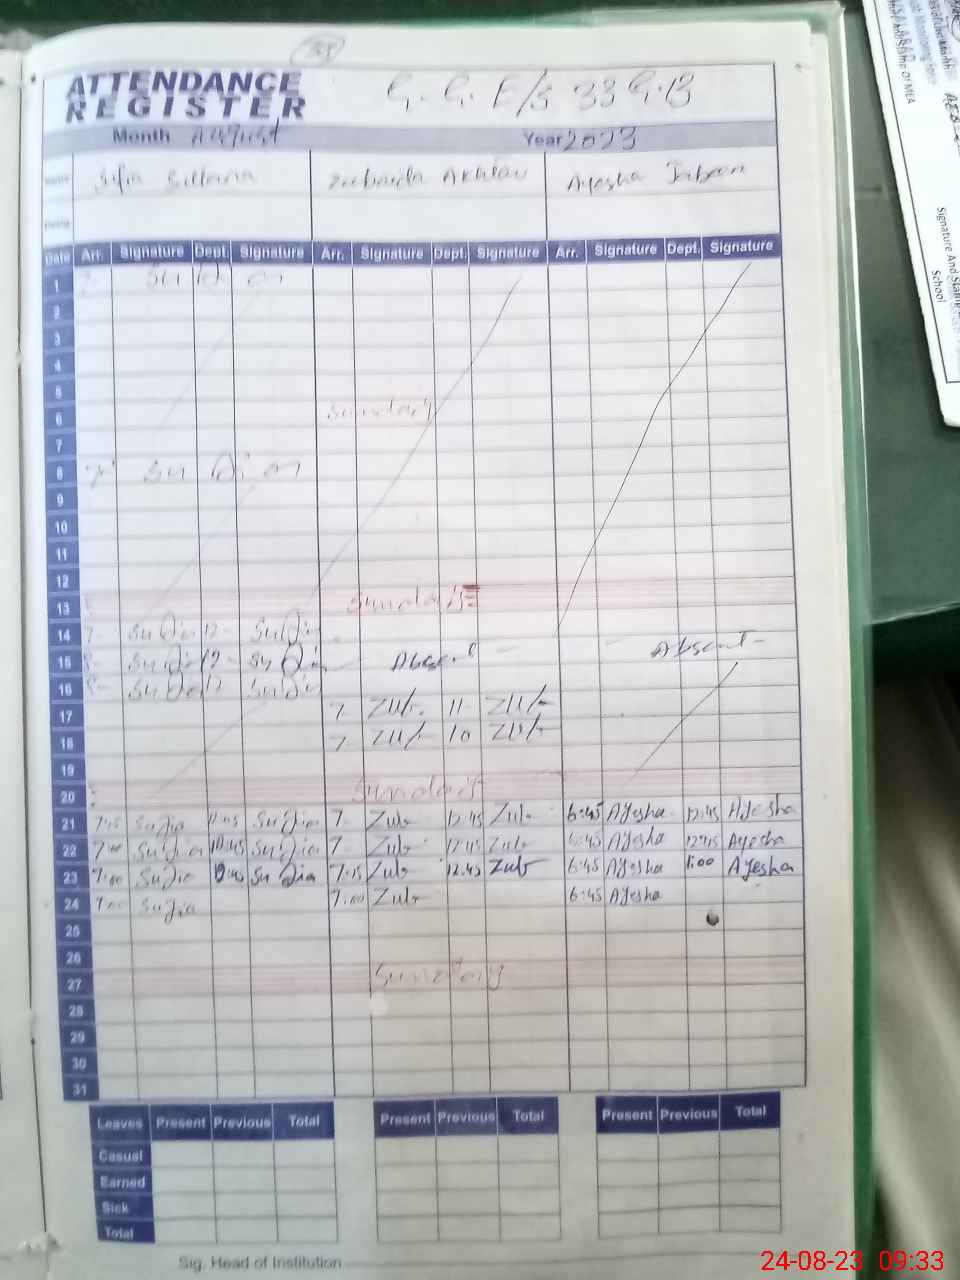 ATTENDANCE
REGISTER
G. G. E/S 33 G.B
Month August Year 2023
Name Sufia Sultana Zubaida Akhtar Ayesha Jabeen
Date Arr. Signature Dept. Signature Arr. Signature Dept. Signature Arr. Signature Dept. Signature
1
2
3
4
5
6 Sunday
7
8
9
10
11
12
13 Sunday
14
15 Absent Absent
16
17 7 Zub 11 Zub
18 7 Zub 10 Zub
19
20 Sunday
21 7:15 Sufia Sufia 7 Zub 12:45 Zub 6:45 Ayesha 12:45 Ayesha
22 7:00 Sufia 12:45 Sufia 7 Zub 12:45 Zub 6:45 Ayesha 12:45 Ayesha
23 7:00 Sufia 12:45 Sufia 7:15 Zub 12:45 Zub 6:45 Ayesha 1:00 Ayesha
24 7:00 Sufia 7:00 Zub 6:45 Ayesha
25
26
27 Sunday
28
29
30
31
Leaves Present Previous Total Present Previous Total Present Previous Total
Casual
Earned
Sick
Total
Sig. Head of Institution
Signature And Stamp
School
24-08-23 09:33